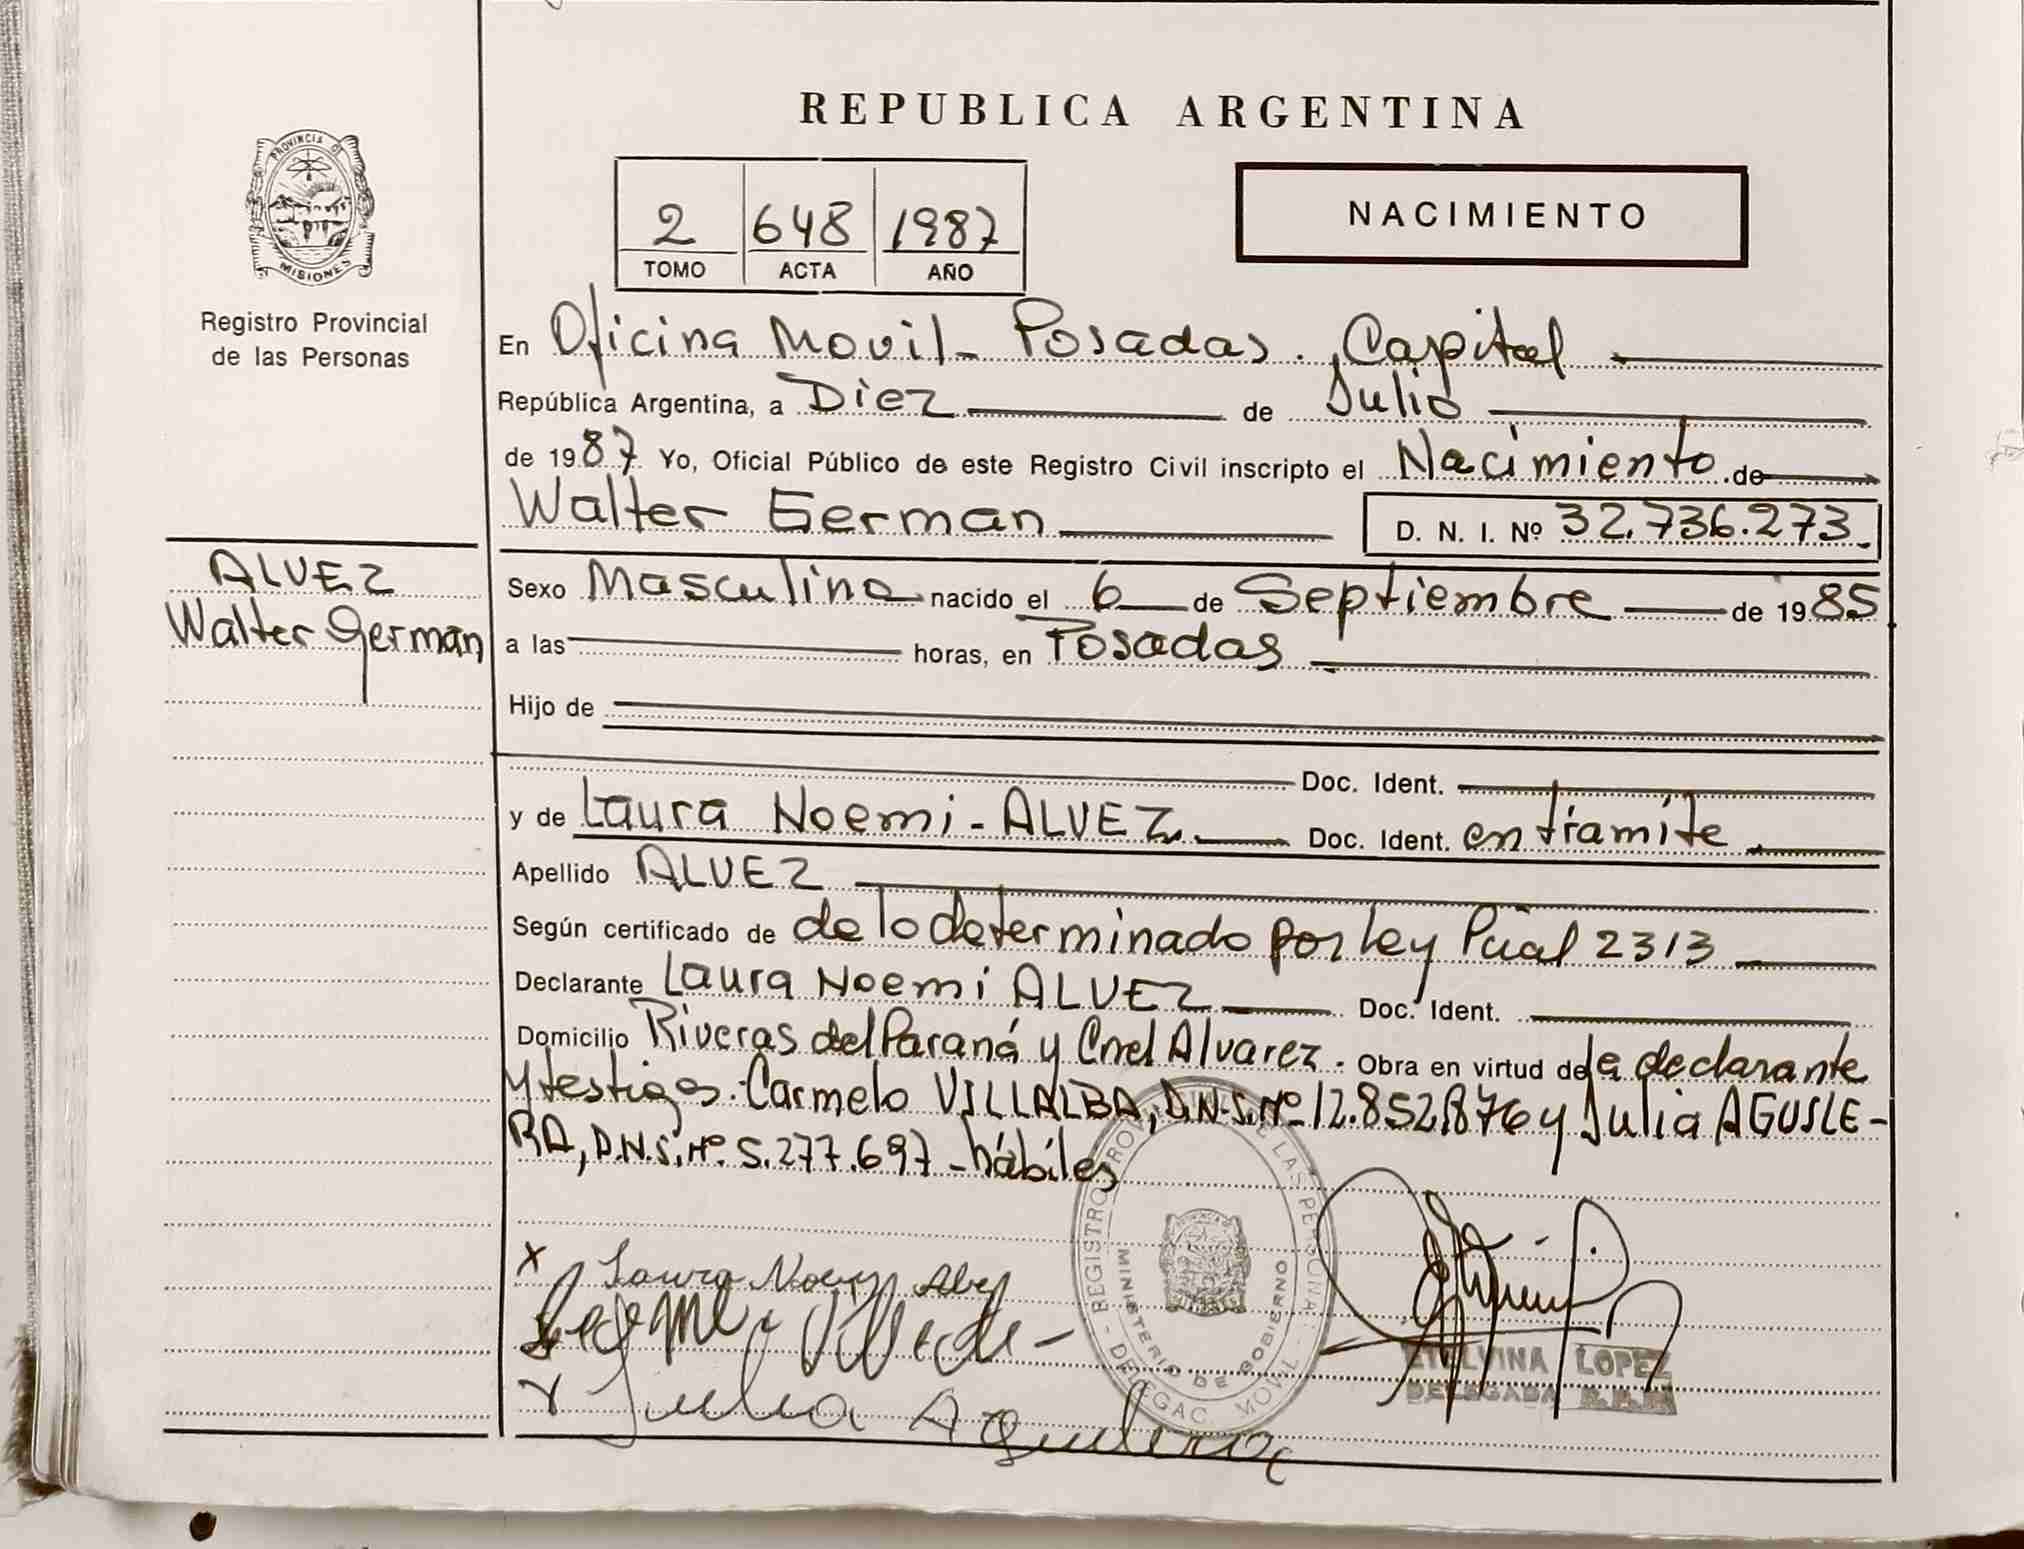 REPUBLICA ARGENTINA
PROVINCIA DE
MISIONES
Registro Provincial
de las Personas
2 648 1987
TOMO ACTA AÑO
NACIMIENTO
En Oficina Movil - Posadas. Capital
República Argentina, a Diez de Julio
de 1987 Yo, Oficial Público de este Registro Civil inscripto el Nacimiento de
Walter German D. N. I. Nº 32.736.273.
ALVEZ
Walter German
Sexo Masculino nacido el 6 de Septiembre de 1985
a las horas, en Posadas
Hijo de
Doc. Ident.
y de Laura Noemi - ALVEZ Doc. Ident. en tramite
Apellido ALVEZ
Según certificado de de lo determinado por Ley Pcial 2313
Declarante Laura Noemi ALVEZ Doc. Ident.
Domicilio Riveras del Paraná y Cnel Alvarez. Obra en virtud de la declarante
y testigos: Carmelo VILLALBA, D.N.I. Nº 12.852.876 y Julia AGUILE-
RA, D.N.I. Nº 5.277.697 - hábiles
REGISTRO PROV DE LAS PERSONA
MINISTERIO DE GOBIERNO
DELEGAC. MOVIL
x Laura Noemi Alvez
Julia Aguilera
ETELVINA LOPEZ
DELEGADA